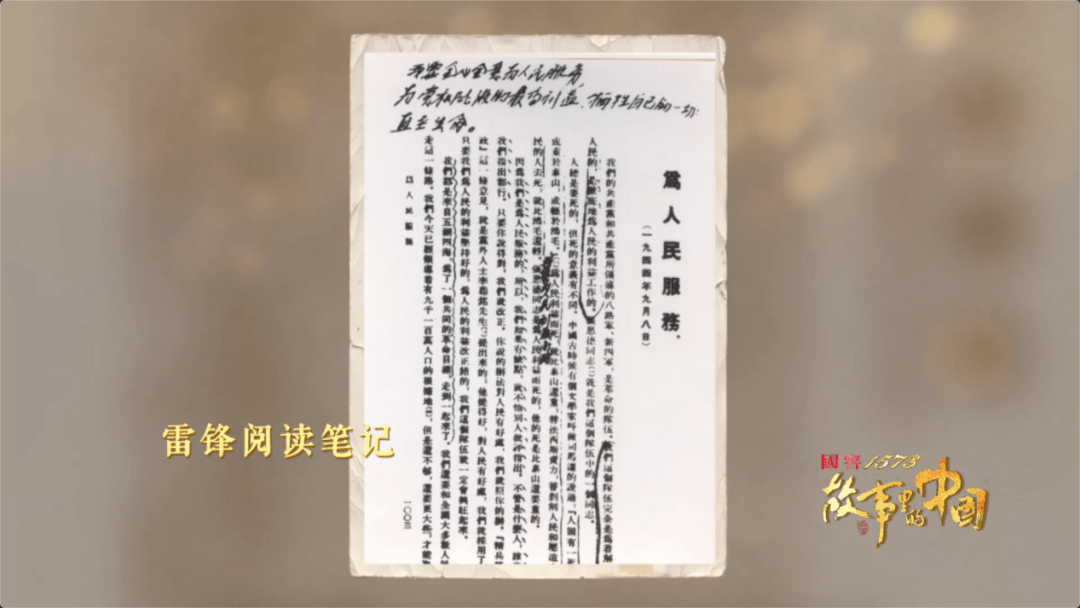 全心全意为人民服务,
为党和阶级的最高利益、牺牲自己的一切
直至生命。
爲人民服務
(一九四四年九月八日)
我們的共產黨和共產黨所領導的八路軍、新四軍，是革命的隊伍。我們這個隊伍完全是爲着解
人民的，是徹底地爲人民的利益工作的。張思德同志〔一〕就是我們這個隊伍中的一個同志。
人總是要死的，但死的意義有不同。中國古時候有個文學家叫做司馬遷的說過：『人固有一死
或重於泰山，或輕於鴻毛。』〔二〕爲人民利益而死，就比泰山還重；替法西斯賣力，替剝削人民和壓迫
民的人去死，就比鴻毛還輕。張思德同志是爲人民利益而死的，他的死是比泰山還要重的。
因爲我們是爲人民服務的，所以，我們如果有缺點，就不怕別人批評指出。不管是什麼人，誰
我們指出都行。只要你說得對，我們就改正。你說的辦法對人民有好處，我們就照你的辦。『精兵
政』這一條意見，就是黨外人士李鼎銘先生〔三〕提出來的，他提得好，對人民有好處，我們就採用了
只要我們爲人民的利益堅持好的，爲人民的利益改正錯的，我們這個隊伍就一定會興旺起來。
我們都是來自五湖四海，爲了一個共同的革命目標，走到一起來了。我們還要和全國大多數人民
走這一條路。我們今天已經領導着有九千一百萬人口的根據地〔四〕，但是還不夠，還要更大些，才能取
爲人民服務
一〇〇三
雷锋阅读笔记
國窖1573
故事里的中国